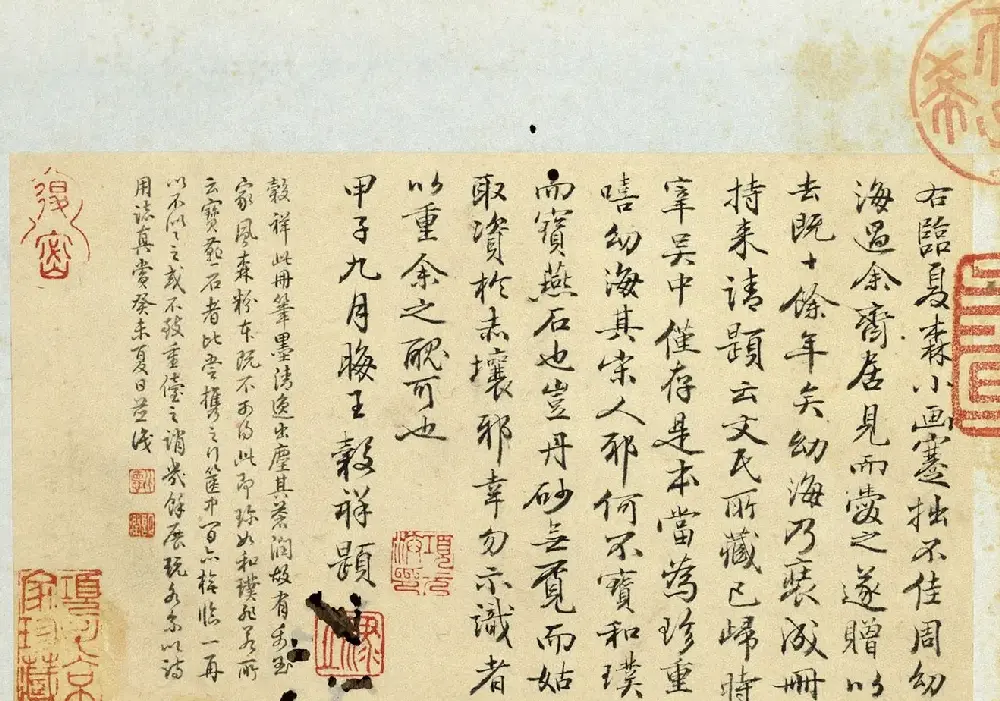 右臨夏森小画蹇拙不佳周幼
海過余齋居見而愛之遂贈以
去既十餘年矣幼海乃裝成冊
持来請題云文氏所藏已歸時
宰吴中僅存是本當為珍重
嘻幼海其宋人邪何不寶和璞
而寶燕石也豈丹砂無覓而姑
取資於赤壤邪幸勿示識者
以重余之醜可也
甲子九月晦王穀祥題
穀祥此冊筆墨清逸出塵其蒼潤故有
家風森粉本既不可得此即珍如和璞耶若所
云寶燕石者比吾攜之行篋中間亦撿臨一再
以不似之或不敢重儓之誚歲餘展玩爰系以詩
用誌真賞癸未夏日並識